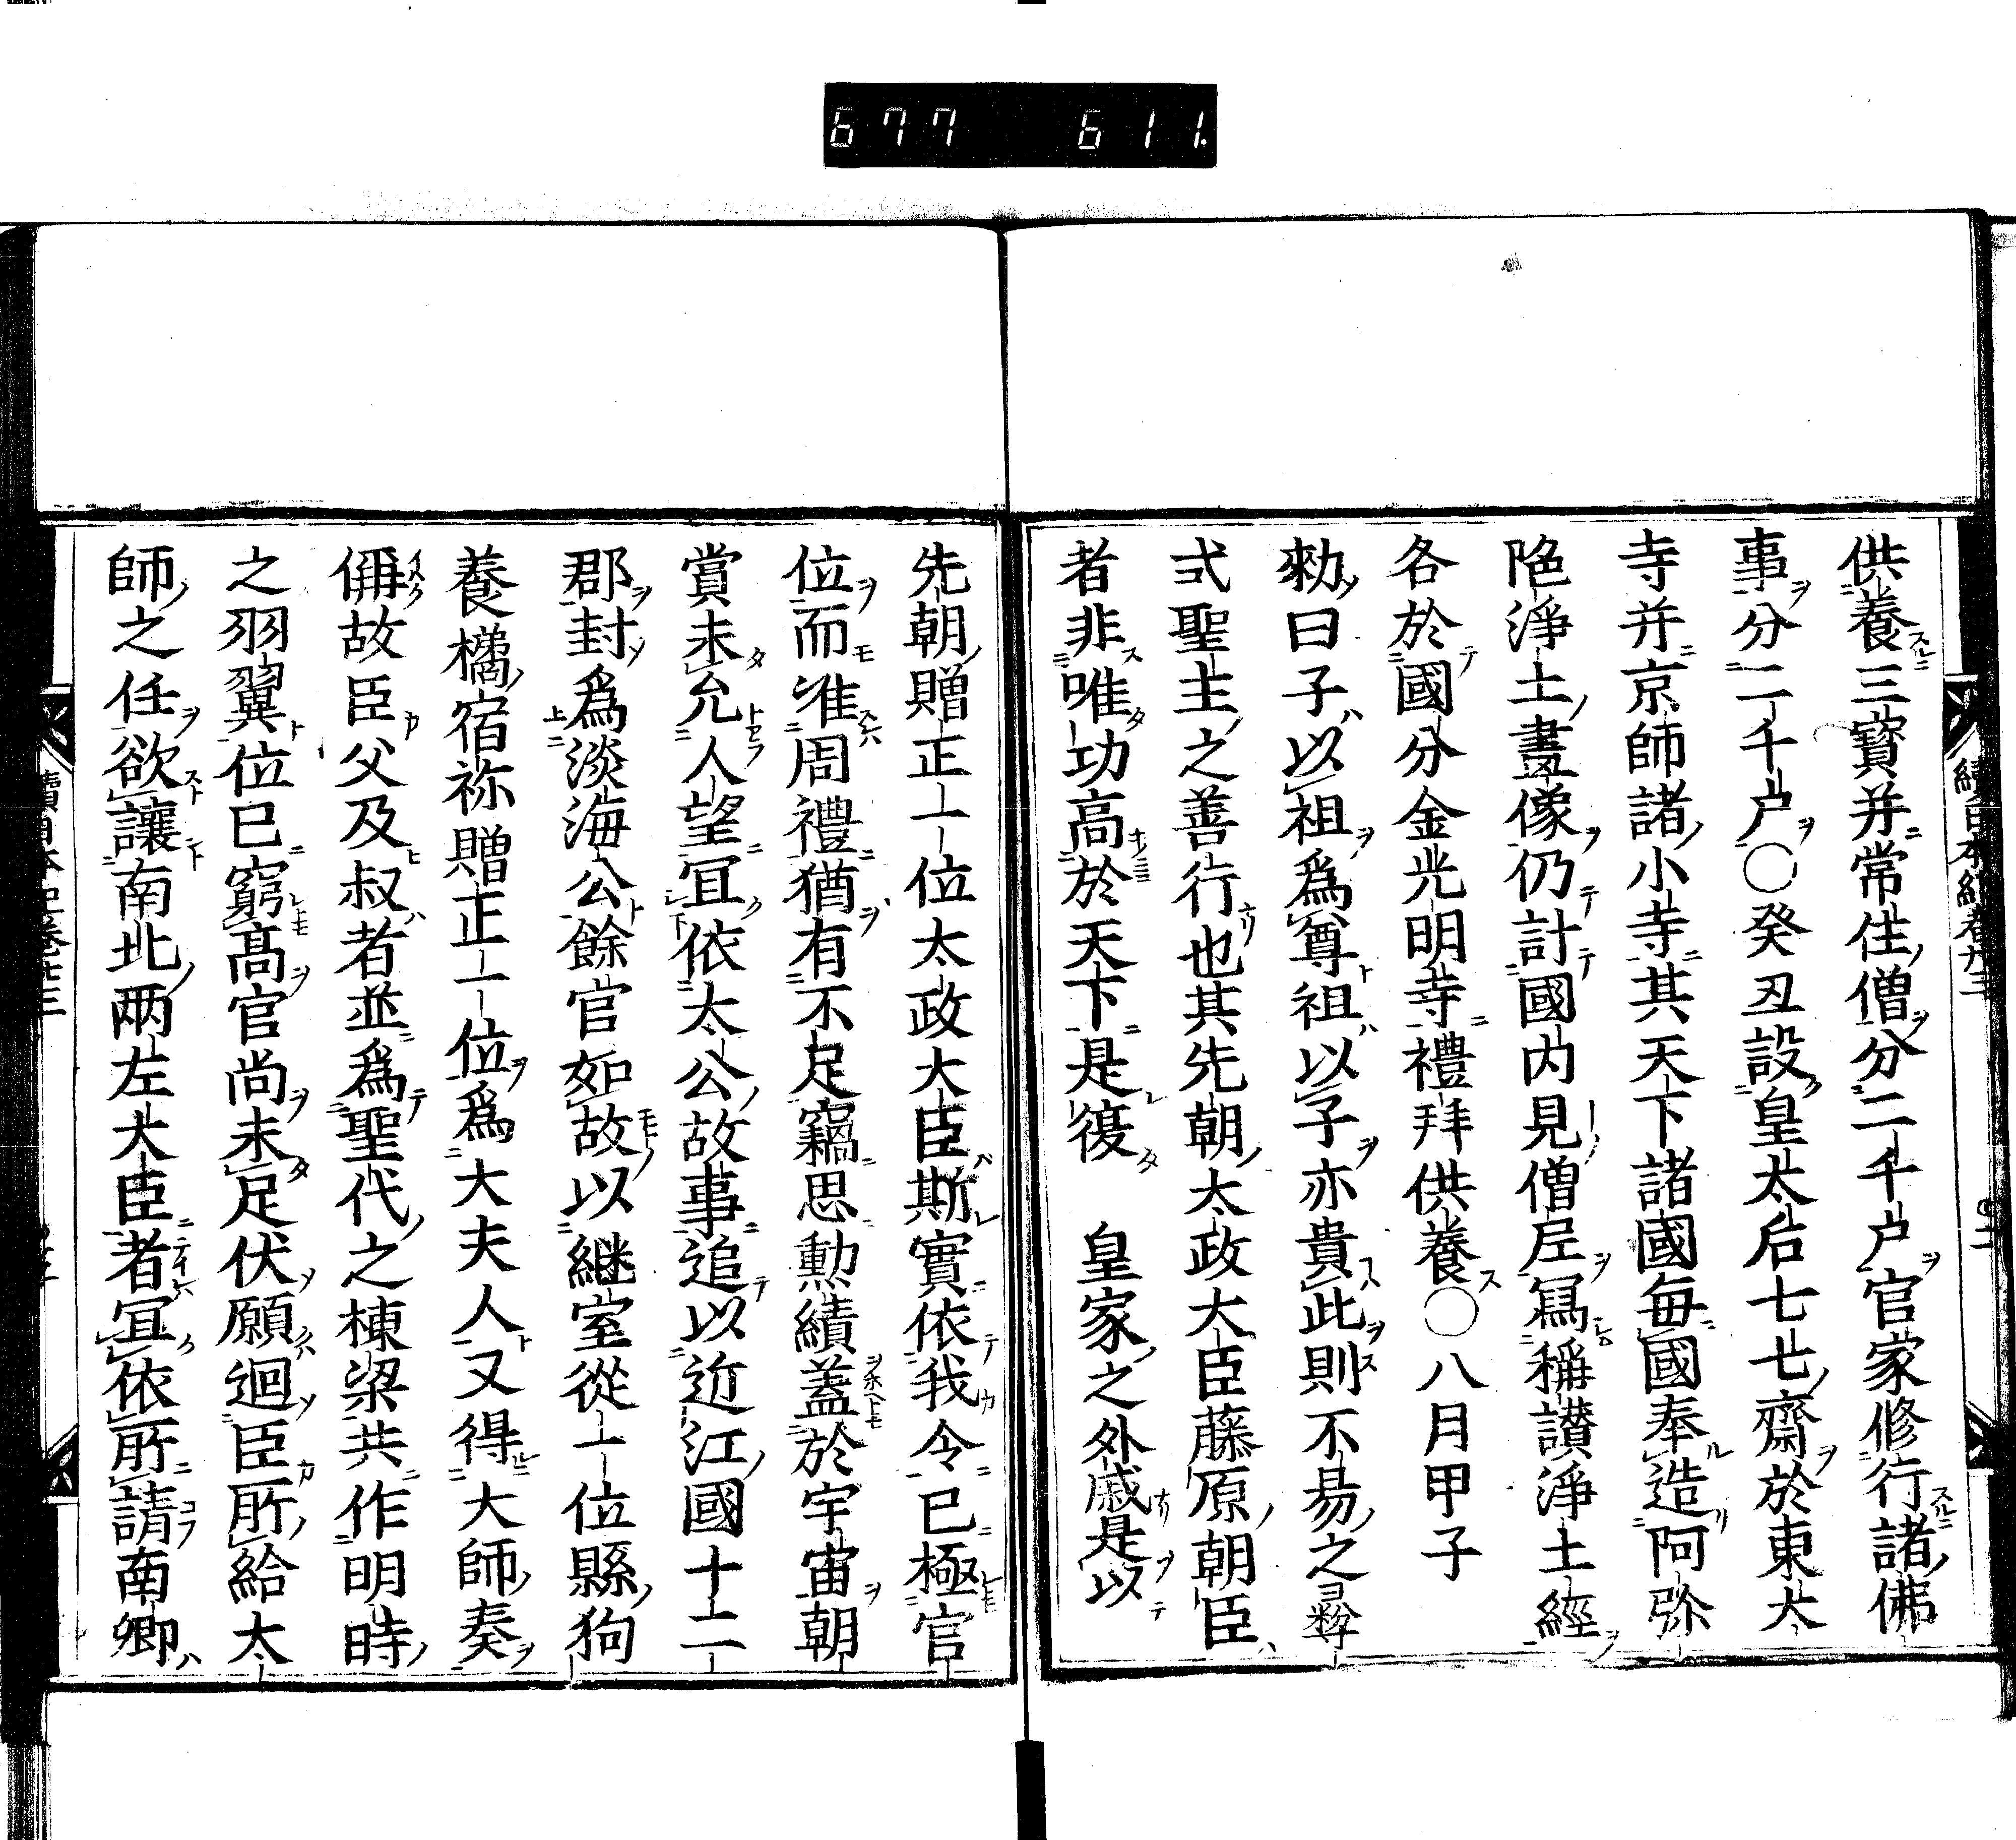 677 611.
供養三寶并常住僧分二千戸官家修行諸佛
事分二千戸〇癸丑設皇太后七七齋於東大
寺并京師諸小寺其天下諸國毎國奉造阿弥
陁淨土畫像仍計國内見僧尼寫稱讃淨土經
各於國分金光明寺禮拜供養〇八月甲子
勅曰子以祖爲尊祖以子亦貴此則不易之彛
式聖主之善行也其先朝太政大臣藤原朝臣
者非唯功高於天下是復　皇家之外戚是以
先朝贈正一位太政大臣斯實依我令已極官
位而准周禮猶有不足竊思勲績蓋於宇宙朝
賞未允人望冝依太公故事追以近江國十二
郡封爲淡海公餘官如故以継室從一位縣狗
養橘宿祢贈正一位爲大夫人又得大師奏
偁故臣父及叔者並爲聖代之棟梁共作明時
之羽翼位已窮髙官尚未足伏願迴臣所給太
師之任欲讓南北兩左大臣者冝依所請南卿
續日本紀卷廿三